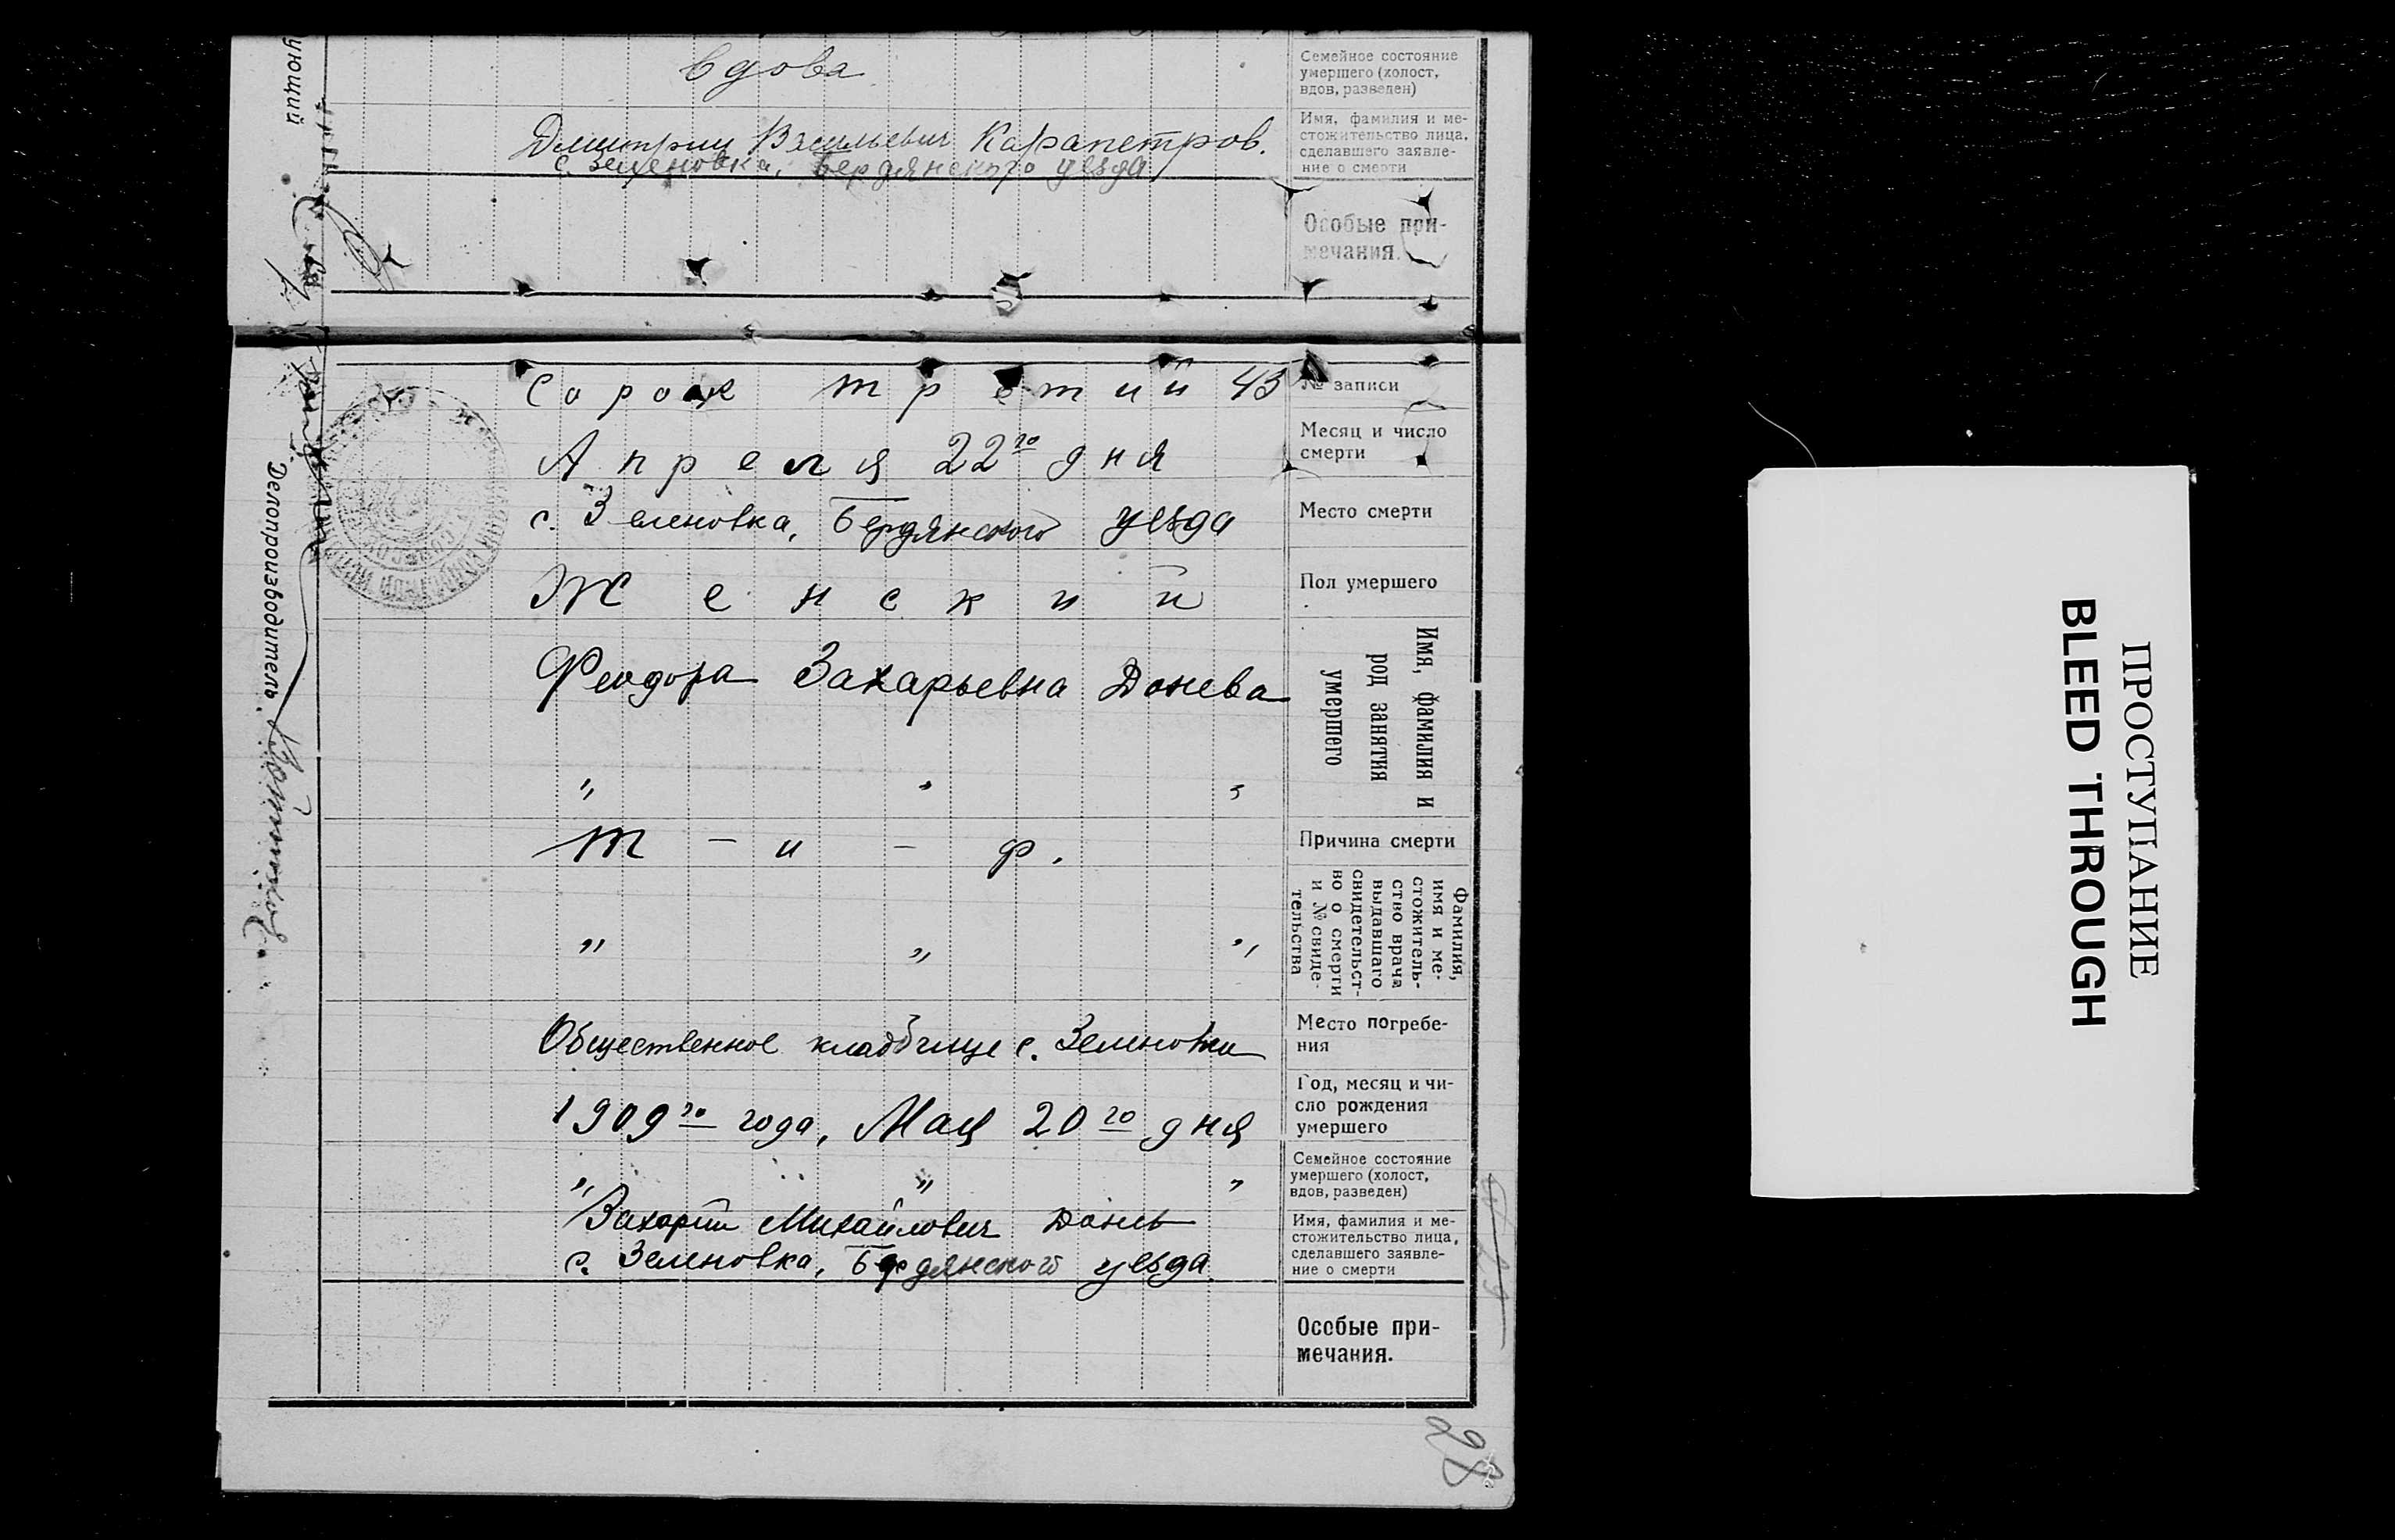 вдова
Семейное состояние
умершего (холост,
вдов, разведен)
Дмитрий Васильевич Карапетров.
с. Зеленовка, Бердянского уезда
Имя, фамилия и ме-
стожительство лица,
сделавшего заявле-
ние о смерти
Особые при-
мечания.
Сорок третий 43
№ записи
Апреля 22го дня
Месяц и число
смерти
с. Зеленовка, Бердянского уезда
Место смерти
Женский
Пол умершего
Феодора Захарьевна Донева
" " "
Имя, фамилия и
род занятия
умершего
Т - и - ф.
Причина смерти
" " "
Фамилия,
имя и ме-
стожитель-
ство врача
выдавшаго
свидетельст-
во о смерти
и № свиде-
тельства
Общественное кладбище с. Зеленовки
Место погребе-
ния
1909го года, Мая 20го дня
Год, месяц и чи-
сло рождения
умершего
" " "
Семейное состояние
умершего (холост,
вдов, разведен)
Захарий Михайлович Донев
с. Зеленовка, Бердянского уезда
Имя, фамилия и ме-
стожительство лица,
сделавшего заявле-
ние о смерти
Особые при-
мечания.
Делопроизводитель
28
ПРОСТУПАНИЕ
BLEED THROUGH